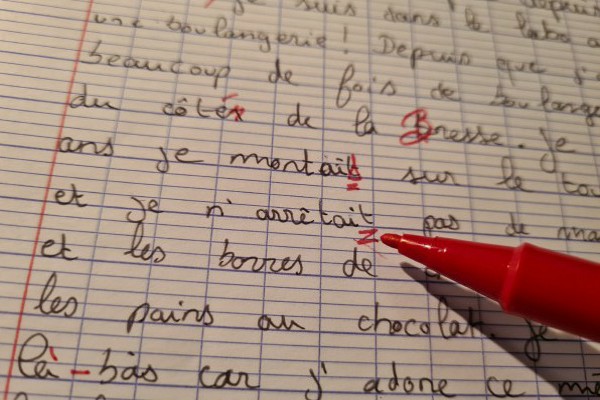 je suis dans le labo
une boulangerie! Depuis que j'
beaucoup de fois de boulange
du côtéx de la Bresse. Je
ans je montait sur le
et je n'arrêtait pas de
et les borres de
les pains au chocolat. Je
là-bàs car j'adore ce